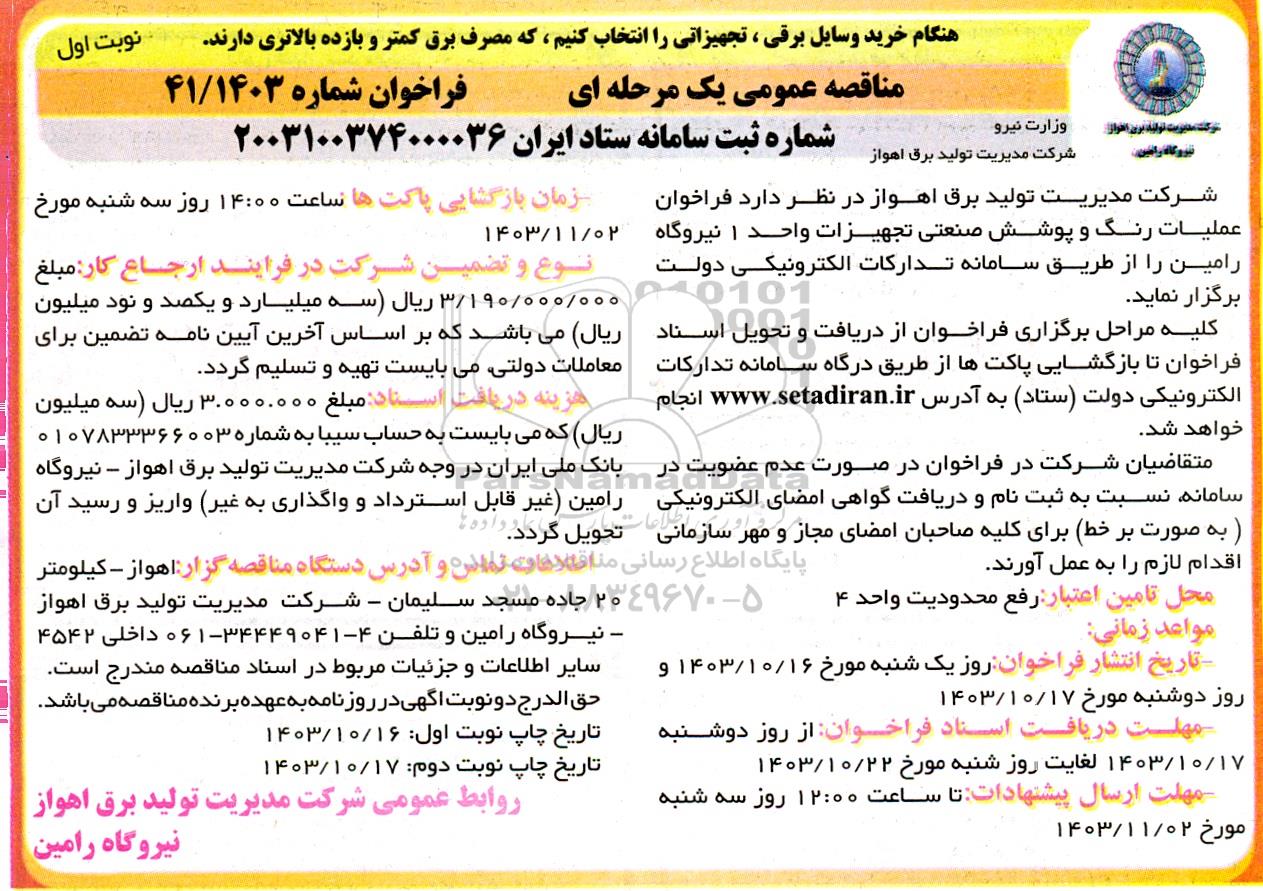 هنگام خرید وسایل برقی ، تجهیزاتی را انتخاب کنیم ، که مصرف برق کمتر و بازده بالاتری دارند.
نوبت اول
مناقصه عمومی یک مرحله ای
فراخوان شماره ۴۱/۱۴۰۳
شماره ثبت سامانه ستاد ایران ۲۰۰۳۱۰۰۳۷۴۰۰۰۰۳۶
وزارت نیرو
شرکت مدیریت تولید برق اهواز
شرکت مدیریت تولید برق اهواز
نیروگاه رامین
شرکت مدیریت تولید برق اهواز در نظر دارد فراخوان
عملیات رنگ و پوشش صنعتی تجهیزات واحد ۱ نیروگاه
رامین را از طریق سامانه تدارکات الکترونیکی دولت
برگزار نماید.
کلیه مراحل برگزاری فراخوان از دریافت و تحویل اسناد
فراخوان تا بازگشایی پاکت ها از طریق درگاه سامانه تدارکات
الکترونیکی دولت (ستاد) به آدرس www.setadiran.ir انجام
خواهد شد.
متقاضیان شرکت در فراخوان در صورت عدم عضویت در
سامانه، نسبت به ثبت نام و دریافت گواهی امضای الکترونیکی
( به صورت بر خط) برای کلیه صاحبان امضای مجاز و مهر سازمانی
اقدام لازم را به عمل آورند.
محل تامین اعتبار:رفع محدودیت واحد ۴
مواعد زمانی:
-تاریخ انتشار فراخوان:روز یک شنبه مورخ ۱۴۰۳/۱۰/۱۶ و
روز دوشنبه مورخ ۱۴۰۳/۱۰/۱۷
-مهلت دریافت اسناد فراخوان: از روز دوشنبه
۱۴۰۳/۱۰/۱۷ لغایت روز شنبه مورخ ۱۴۰۳/۱۰/۲۲
-مهلت ارسال پیشنهادات:تا ساعت ۱۲:۰۰ روز سه شنبه
مورخ ۱۴۰۳/۱۱/۰۲
-زمان بازگشایی پاکت ها :ساعت ۱۴:۰۰ روز سه شنبه مورخ
۱۴۰۳/۱۱/۰۲
نوع و تضمین شرکت در فرایند ارجاع کار:مبلغ
۳/۱۹۰/۰۰۰/۰۰۰ ریال (سه میلیارد و یکصد و نود میلیون
ریال) می باشد که بر اساس آخرین آیین نامه تضمین برای
معاملات دولتی، می بایست تهیه و تسلیم گردد.
هزینه دریافت اسناد:مبلغ ۳.۰۰۰.۰۰۰ ریال (سه میلیون
ریال) که می بایست به حساب سیبا به شماره ۰۱۰۷۸۳۳۳۶۶۰۰۳
بانک ملی ایران در وجه شرکت مدیریت تولید برق اهواز – نیروگاه
رامین (غیر قابل استرداد و واگذاری به غیر) واریز و رسید آن
تحویل گردد.
اطلاعات تماس و آدرس دستگاه مناقصه گزار:اهواز – کیلومتر
۲۰ جاده مسجد سلیمان – شرکت مدیریت تولید برق اهواز
– نیروگاه رامین و تلفن ۴-۰۶۱-۳۴۴۴۹۰۴۱ داخلی ۴۵۴۲
سایر اطلاعات و جزئیات مربوط در اسناد مناقصه مندرج است.
حق الدرج دو نوبت اگهی در روزنامه به عهده برنده مناقصه می باشد.
تاریخ چاپ نوبت اول: ۱۴۰۳/۱۰/۱۶
تاریخ چاپ نوبت دوم: ۱۴۰۳/۱۰/۱۷
روابط عمومی شرکت مدیریت تولید برق اهواز
نیروگاه رامین
ParsNamadData
پایگاه اطلاع رسانی مناقصه و مزایده
۰۲۱-۸۸۳۴۹۶۷۰-۵